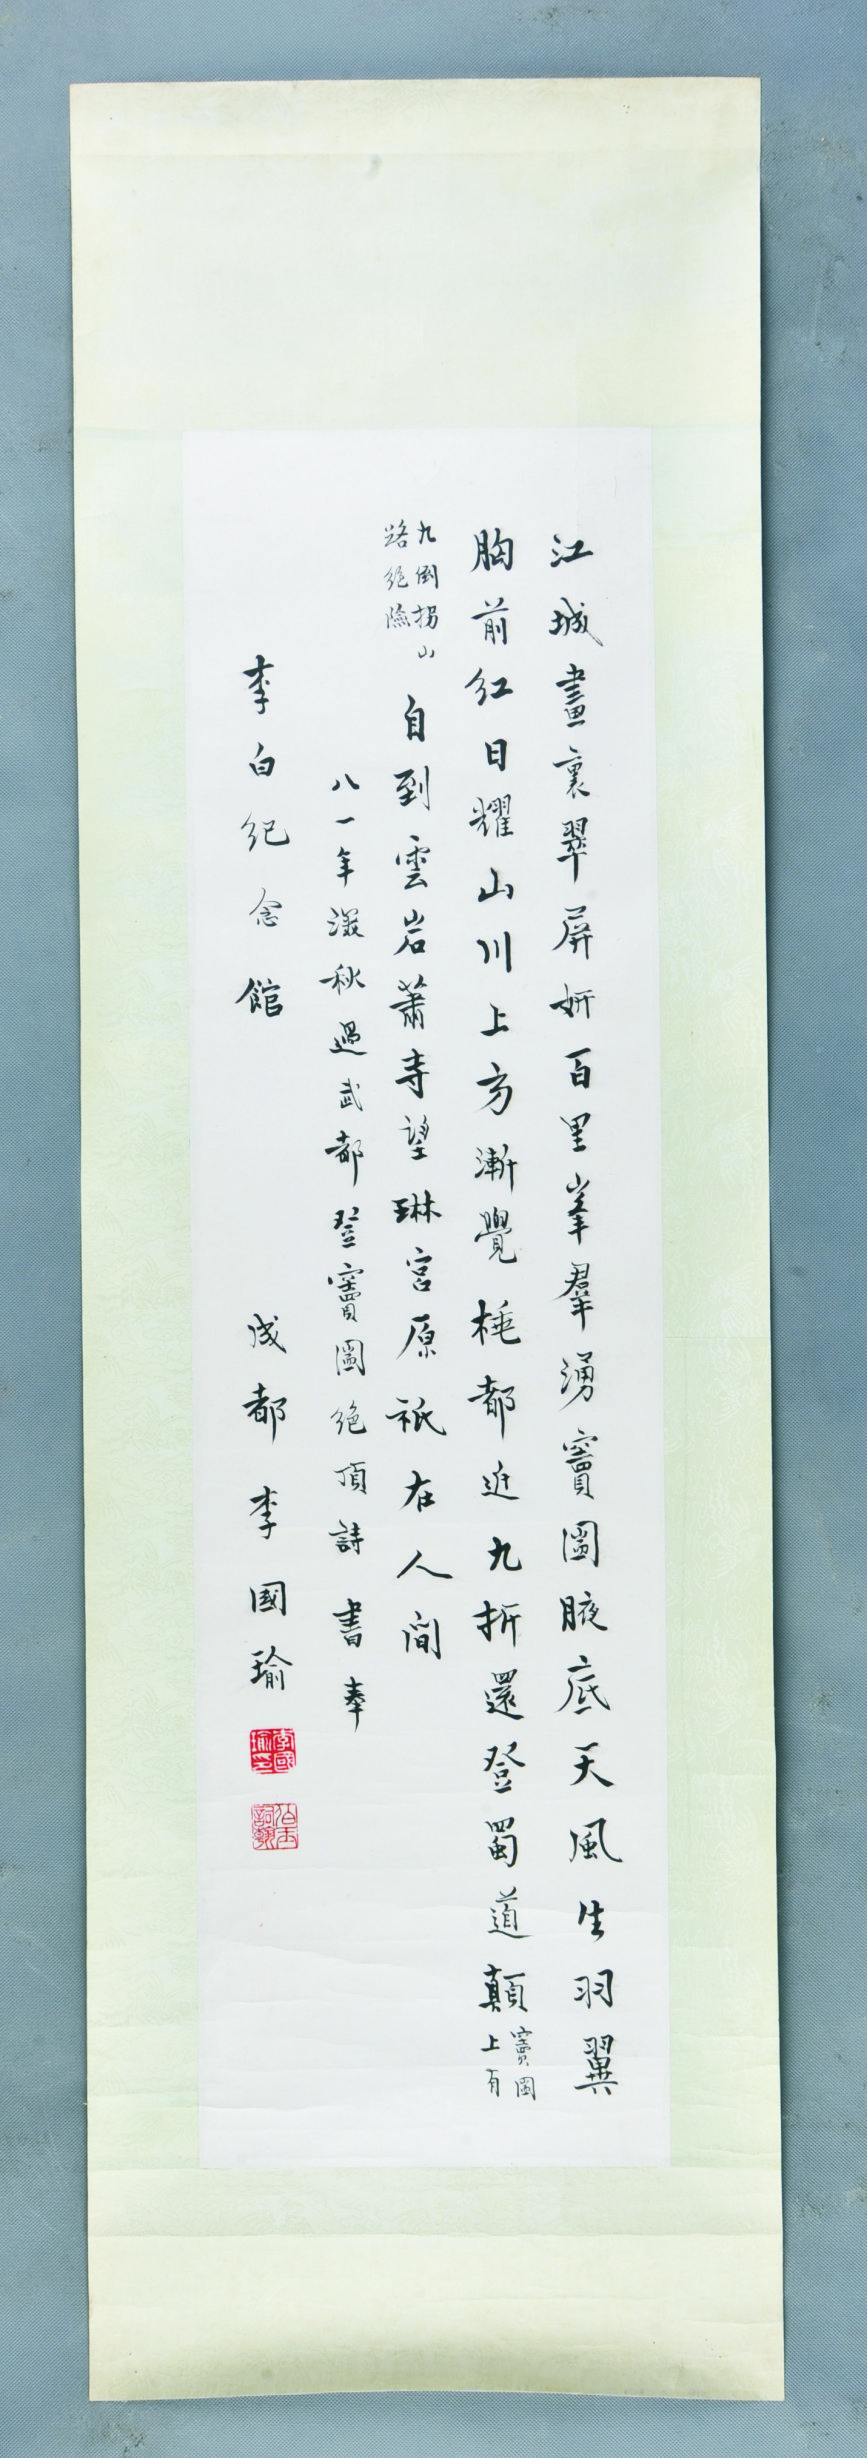 江城畫裏翠屏妍百里峯羣湧竇圌腋底天風生羽翼
胸前紅日耀山川上方漸覺都近九折還登蜀道顛
竇圌
上有
九倒拐山
路絕險
自到雲岩蕭寺望琳宮原祇在人間
八一年深秋過武都登竇圌絕頂詩書奉
李白紀念館 成都李國瑜
李國瑜印